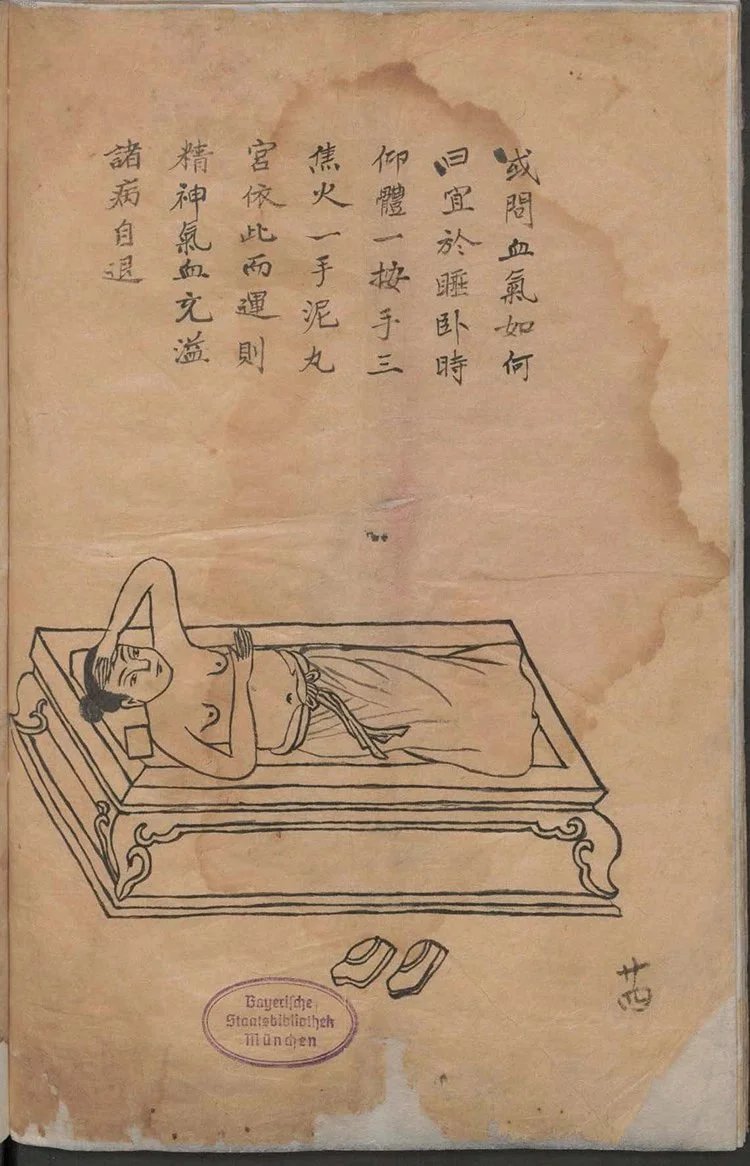 或問血氣如何
曰宜於睡卧時
仰體一按手三
焦火一手泥丸
宮依此而運則
精神氣血充溢
諸病自退
廿四
Bayerische
Staatsbibliothek
München